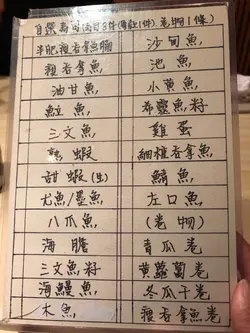 自選壽司(可訂8件(每款1件)卷物1條)
半肥瘦吞拿魚腩
沙甸魚
瘦吞拿魚
池魚
油甘魚
小黃魚
鯛魚
希靈魚籽
三文魚
雞蛋
熟蝦
細粒吞拿魚
甜蝦(生)
鯖魚
尤魚/墨魚
左口魚
八爪魚
(卷物)
海膽
青瓜卷
三文魚籽
黃蘿蔔卷
海鰻魚
冬瓜干卷
木魚
瘦吞拿魚卷